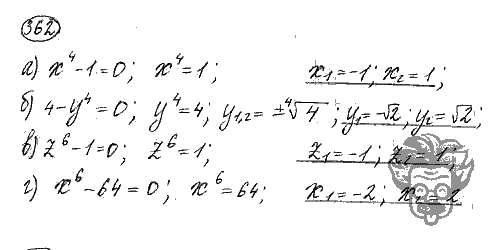 362
а) x⁴-1=0; x⁴=1; x₁=-1; x₂=1;
б) 4-y⁴=0; y⁴=4; y₁,₂=±⁴√4; y₁=-√2; y₂=√2;
в) z⁶-1=0; z⁶=1; z₁=-1; z₂=1;
г) x⁶-64=0; x⁶=64; x₁=-2; x₂=2